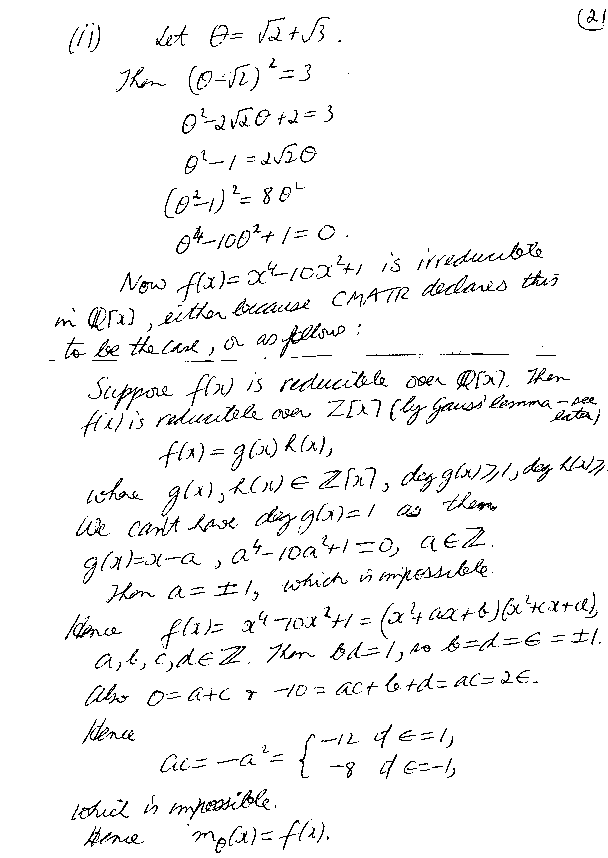 (21
(ii) Let θ = √2+√3.
Then (θ-√2)² = 3
θ²-2√2θ+2 = 3
θ²-1 = 2√2θ
(θ²-1)² = 8θ²
θ⁴-10θ²+1 = 0.
Now f(x) = x⁴-10x²+1 is irreducible
in ℚ[x], either because CMATR declares this
to be the case, or as follows:
Suppose f(x) is reducible over ℚ[x]. Then
f(x) is reducible over ℤ[x] (by Gauss' lemma - see
later)
f(x) = g(x)h(x),
where g(x), h(x) ∈ ℤ[x], deg g(x) ⩾ 1, deg h(x) ⩾
We can't have deg g(x) = 1 as then
g(x) = x-a, a⁴-10a²+1 = 0, a ∈ ℤ.
Then a = ±1, which is impossible.
Hence f(x) = x⁴-10x²+1 = (x²+ax+b)(x²+cx+d),
a, b, c, d ∈ ℤ. Then bd = 1, so b = d = ϵ = ±1.
Also 0 = a+c & -10 = ac+b+d = ac = 2ϵ.
Hence
ac = -a² = { -12 if ϵ = 1,
-8 if ϵ = -1,
which is impossible.
Hence m_θ(x) = f(x).